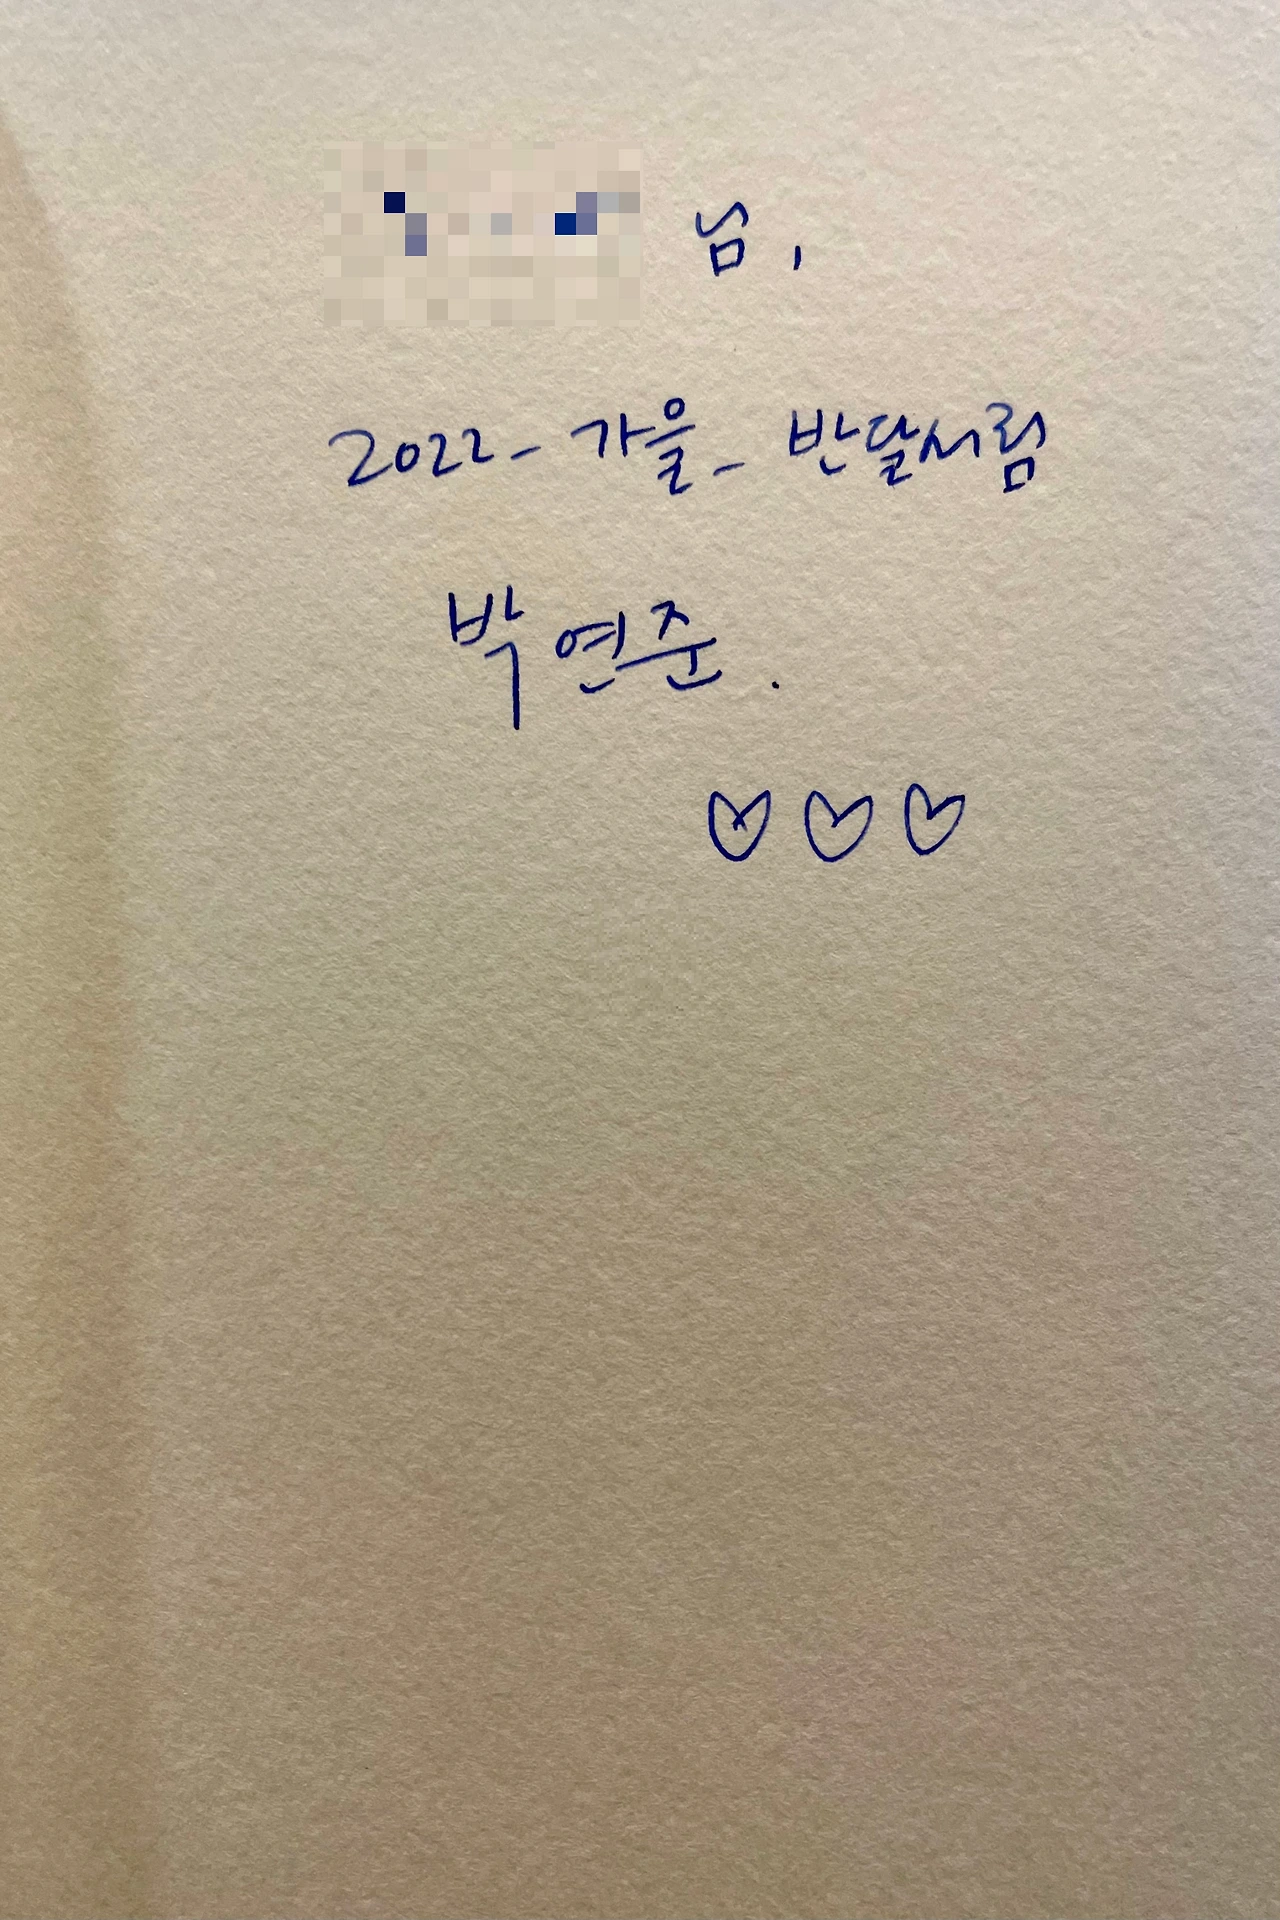 님,
2022_ 가을_ 반달서림
박연준.
♡♡♡